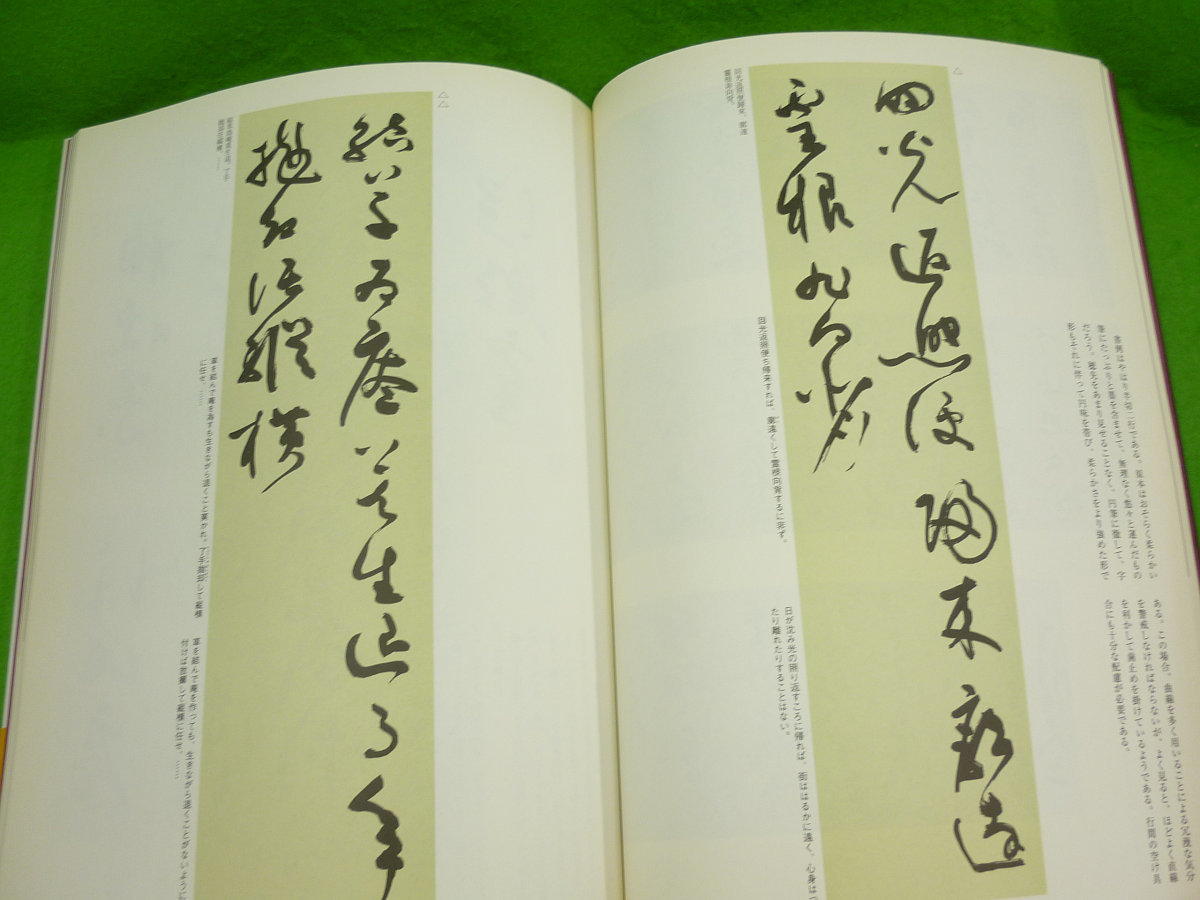 書例はやはり半切二行である。原本はおそらく柔らかい
筆にたっぷりと墨を含ませて、無理なく悠々と運んだもの
だろう。穂先をあまり見せることなく、円筆に徹して、字
形もそれに伴って円味を帯び、柔らかさをより強めた形で
ある。この場合、曲線を多く用いることによる冗漫な気分
を警戒しなければならないが、よく見ると、ほどよく直線
を利かして歯止めを掛けているようである。行間の空け具
合にも十分な配慮が必要である。
△
回光返照便帰来
霊根非向背
霊根非向背。
回光返照便ち帰来すれば、
遠くして霊根向背するに非ず。
日が沈み光の照り返すころに帰れば、街ははるかに遠く、心身は
たり離れたりすることはない。
△△
結草為庵莫生退了手
抛却任縦横
草を結んで庵を為すも生きながら退くこと莫かれ。了手抛却して縦横
に任せ、……
草を結んで庵を作っても、生きながら退くことがないように
付けば放擲して縦横に任せ、……